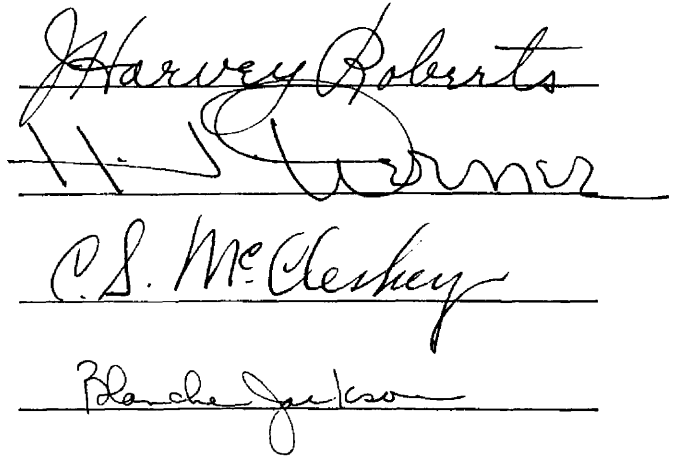 J Harvey Roberts
H. Werner
C. S. McCleskey
Blanche Jackson